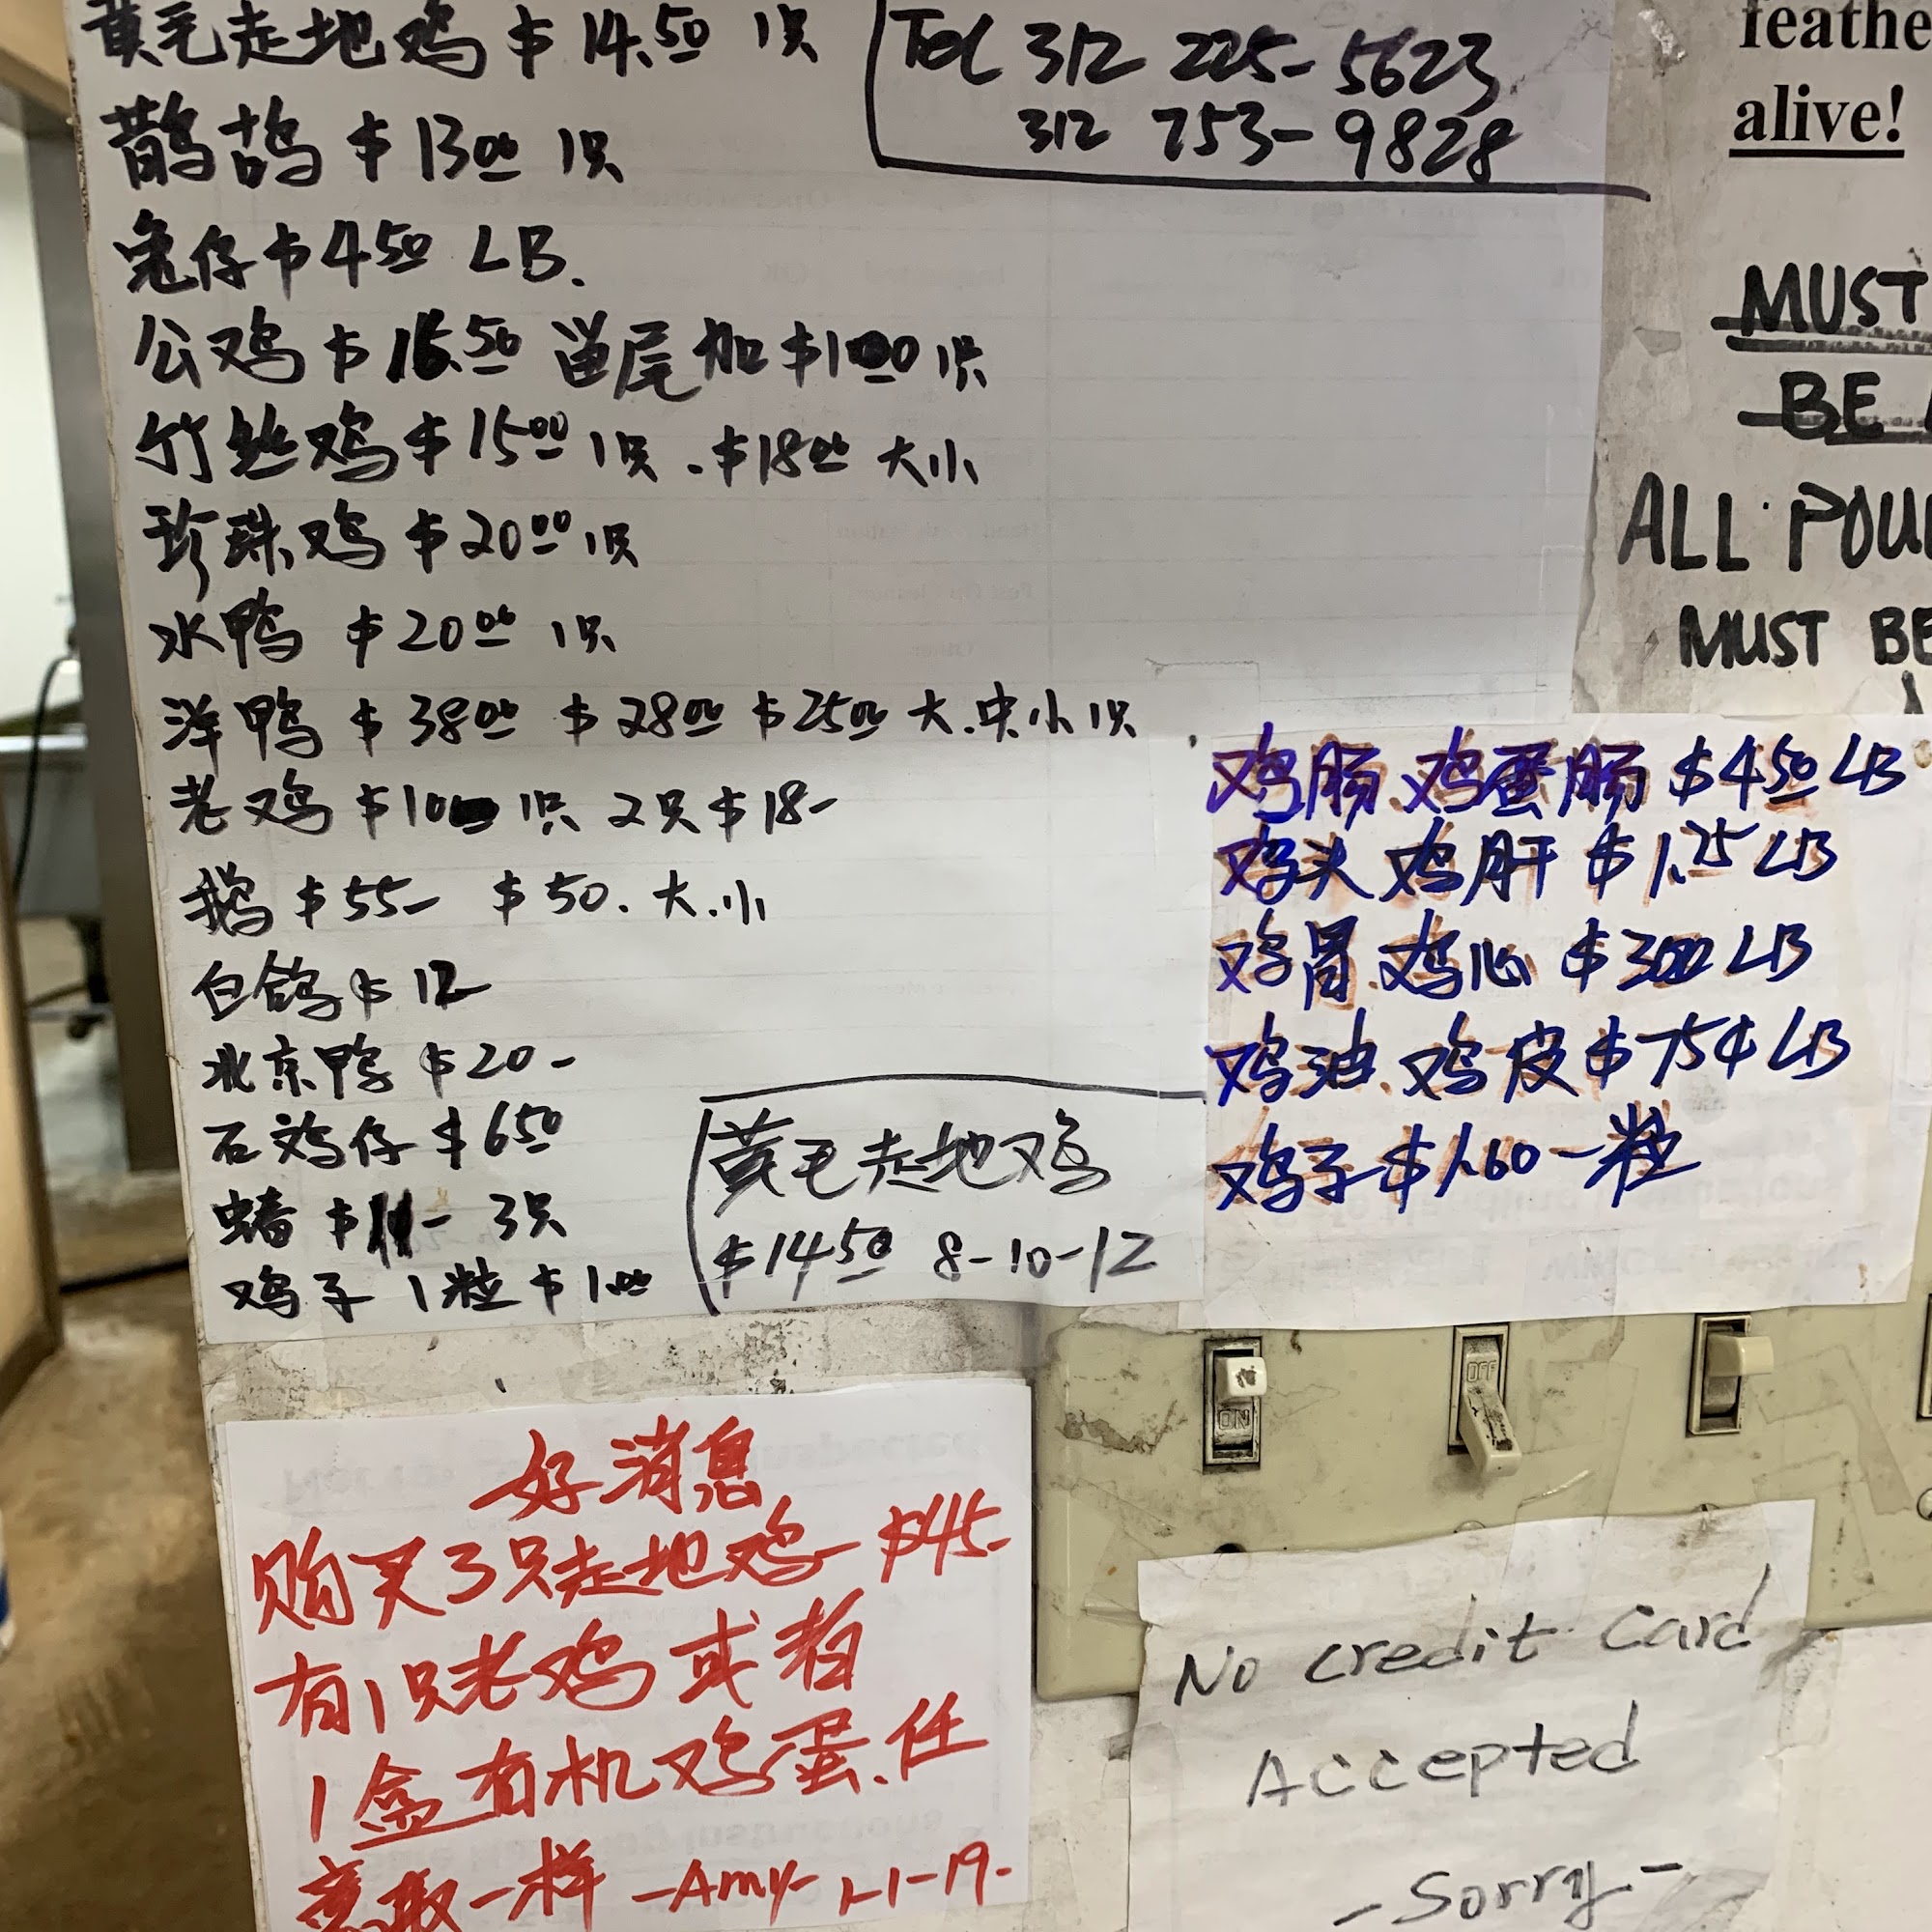 黄毛走地鸡 $14.50 1只
Tel 312 225-5623
312 753-9828
鹧鸪 $13.00 1只
兔仔 $4.50 LB.
公鸡 $16.50 留尾加 $1.00 1只
竹丝鸡 $15.00 1只. $18.00 大小
珍珠鸡 $20.00 1只
水鸭 $20.00 1只
洋鸭 $38.00 $28.00 $25.00 大.中.小 1只
老鸡 $10 1只 2只 $18-
鹅 $55- $50. 大.小
白鸽 $12
北京鸭 $20-
石鸡仔 $6.50
$11- 3只
鸡子 1粒 $1.00
黄毛走地鸡
$14.50 8-10-12
鸡肠.鸡蛋肠 $4.50 LB
鸡头 鸡肝 $1.25 LB
鸡胃.鸡心 $3.00 LB
鸡油.鸡皮 $75¢ LB
鸡子 $1.60 一粒
feathe
alive!
MUST
BE
ALL POUL
MUST BE
ON
OFF
好消息
购买3只走地鸡 $45-
有1只老鸡或者
1盒有机鸡蛋.任
意取一样 -Amy- 1-1-19-
No credit card
Accepted
-Sorry-